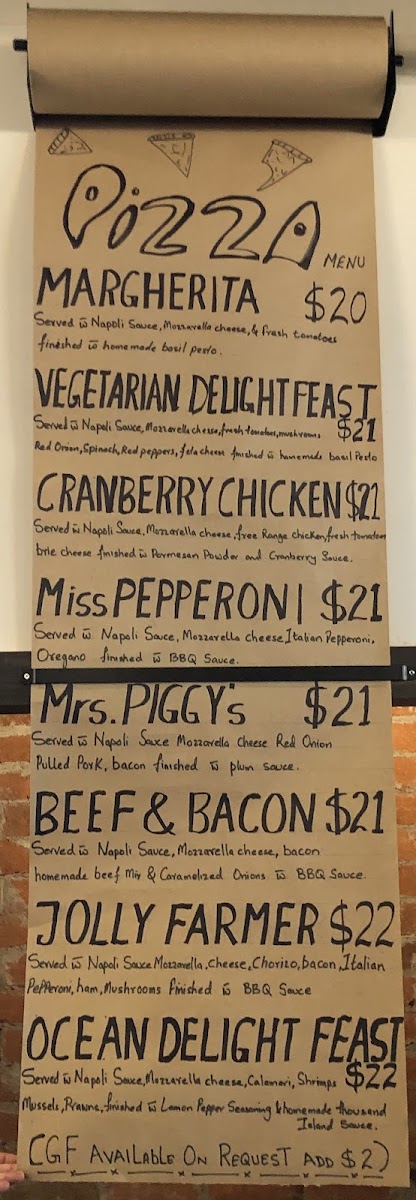 PIZZA
MENU
MARGHERITA $20
Served w Napoli Sauce, Mozzarella cheese, & fresh tomatoes
finished w homemade basil pesto.
VEGETARIAN DELIGHT FEAST
$21
Served w Napoli Sauce, Mozzarella cheese, fresh tomatoes, mushrooms
Red Onion, Spinach, Red peppers, feta cheese finished w homemade basil Pesto
CRANBERRY CHICKEN $21
Served w Napoli Sauce, Mozzarella cheese, free Range chicken, fresh tomatoes
brie cheese finished w Parmesan Powder and Cranberry Sauce.
Miss PEPPERONI $21
Served w Napoli Sauce, Mozzarella cheese, Italian Pepperoni,
Oregano finished w BBQ Sauce.
Mrs. PIGGY's $21
Served w Napoli Sauce Mozzarella Cheese Red Onion
Pulled Pork, bacon finished w plum sauce.
BEEF & BACON $21
Served w Napoli Sauce, Mozzarella cheese, bacon
homemade beef Mix & Caramelized Onions w BBQ Sauce.
JOLLY FARMER $22
Served w Napoli Sauce Mozzarella, cheese, Chorizo, bacon, Italian
Pepperoni, ham, Mushrooms Finished w BBQ Sauce
OCEAN DELIGHT FEAST
$22
Served w Napoli Sauce, Mozzarella cheese, Calamari, Shrimps
Mussels, Prawns, finished w Lemon Pepper Seasoning & homemade thousand
Island Sauce.
(GF AVAILABLE ON REQUEST ADD $2)